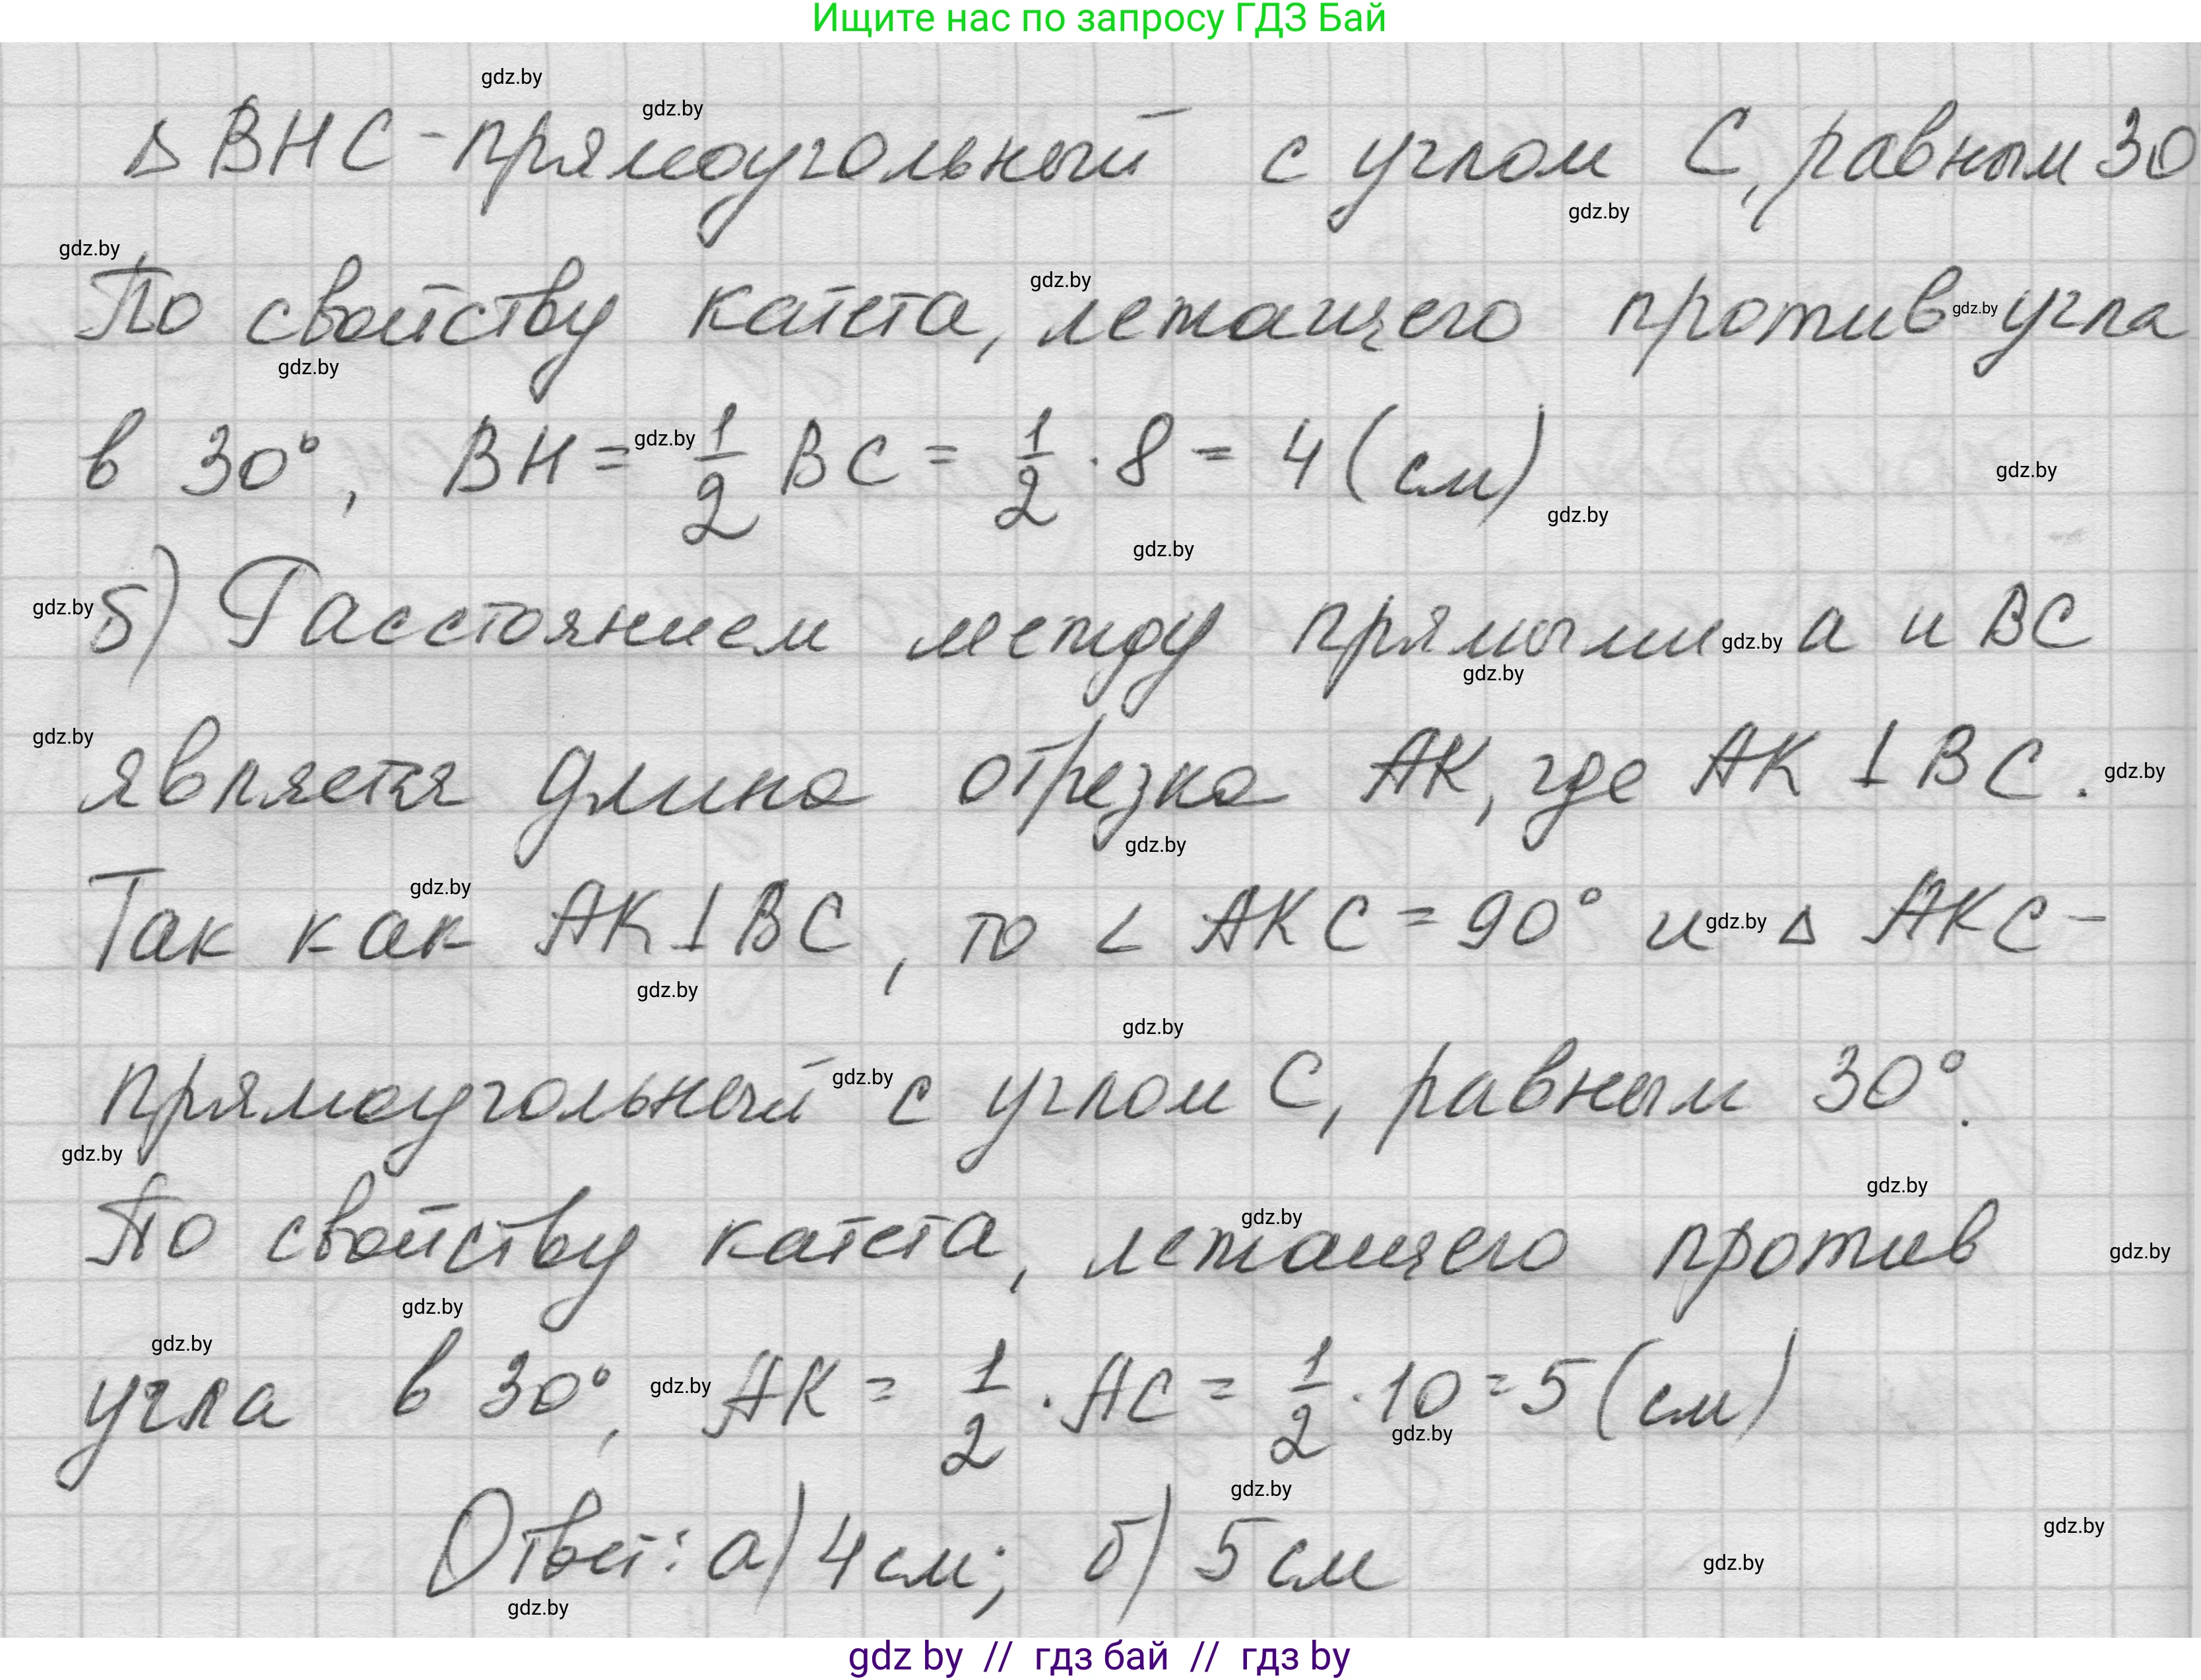 Ищите нас по запросу ГДЗ Бай
gdz.by
gdz.by
Δ BHC - прямоугольный с углом C, равным 30
gdz.by
gdz.by
gdz.by
По свойству катета, лежащего против gdz.by угла
gdz.by
в 30°, BH = gdz.by 1/2 BC = 1/2 · 8 = 4 (см)
gdz.by
gdz.by
gdz.by
gdz.by б) Расстоянием между прямыми gdz.by а и BC
gdz.by
gdz.by
является длина отрезка AK, где AK ⊥ BC. gdz.by
gdz.by
gdz.by
Так как AK ⊥ BC, то ∠ AKC = 90° и gdz.by Δ AKC -
gdz.by
gdz.by
прямоугольный gdz.by с углом C, равным 30°.
gdz.by
gdz.by
gdz.by
По свойству катета, лежащего против
gdz.by
gdz.by
gdz.by
угла в 30°, gdz.by AK = 1/2 · AC = 1/2 · 10 = 5 (см)
gdz.by
gdz.by
Ответ: а) 4 см; б) 5 см
gdz.by
gdz.by
gdz.by
gdz by // гдз бай // гдз by